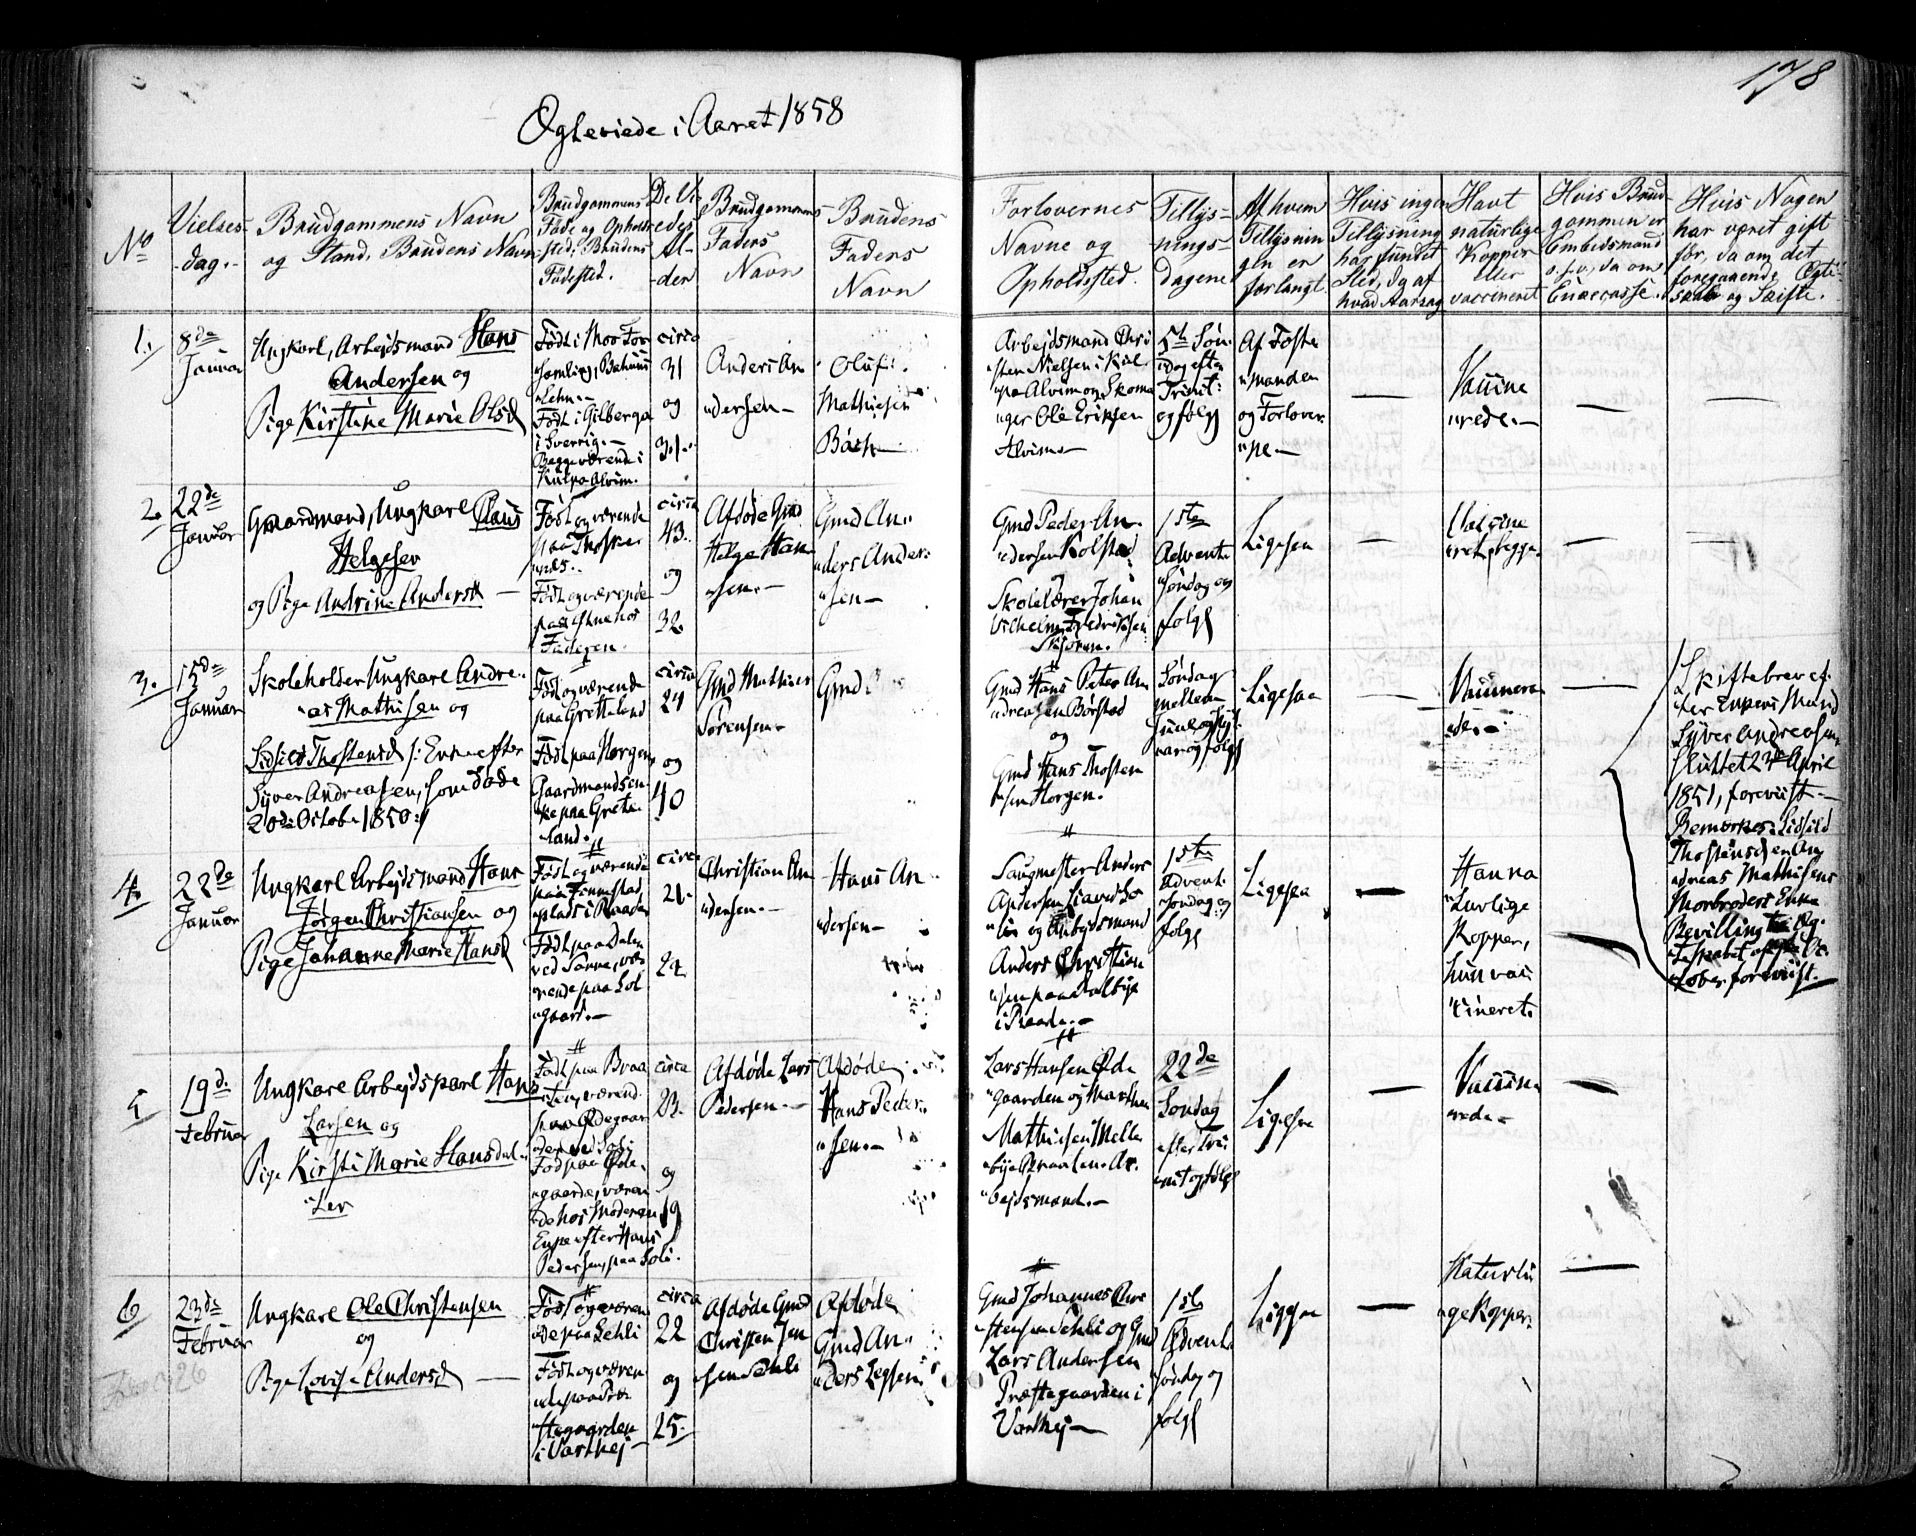 178
Ægteviede i Aaret 1858
No
Vielses-
dag.
Brudgommens Navn
og Stand, Brudens Navn
Brudgommens
Føde og Opholds
sted; Brudens
Fødested.
De Vi-
edes
Al-
der
Brudgommens
Faders
Navn
Brudens
Faders
Navn
Forlovernes
Navne og
Opholdssted.
Tillys-
nings-
dagene
Af hvem
Tillysnin
gen er
forlangt.
Hvis ingen
Tillysning
har fundet
Sted, da af
hvad Aarsag
Havt
naturlige
Kopper
eller
vaccineret
Hvis Brud-
gommen er
Embedsmand
o.s.v, da om
Enkecasse.
Hvis Nogen
har været gift
før, da om det
foregaaende Ægte
skab og Skifte.
1.
8de
Januar
Ungkarl, Arbejdsmand Hans
Andersen og
Pige Kirstine Marie Olsd
Født i Moss
Født i Gilberga
i Sverrig.
Begge værende i
Alvim.
circa
31
og
31.
Anders An
dersen
Oluf
Mathiesen
Arbejdsmand Chri
sten Nielsen i
Alvim og Skoma
ger Ole Eriksen
Alvim
5te Søn
dag efter
Trinit:
og følg
Af Foster
manden
og Forlover
ne.
Vaccine
rede.
2.
22de
Januar
Gaardmand, Ungkarl Claus
Helgesen
og Pige Andrine Andersd
Født og værende
paa
Født og værende
paa hos
Faderen.
circa
43.
og
32.
Afdøde Gmd
Helge Han
sen.
Gmd An
ders Ander
sen
Gmd Peder An
dersen Kolstad
Skolelærer Johan
Vilhelm Fredriksen
1ste
Advent
Søndag og
følg
Ligesaa
Vaccine
ret begge.
3.
15de
Januar
Skoleholder Ungkarl Andre
as Mathisen og
Thostensd /: Enke efter
Syver Andreasen, som døde
20de Octobr 1850:/
Født og værende
paa Gretteland
Født paa Horgen
Gaardmandsen
ke paa Grete
land.
circa
24
og
40
Gmd Mathias
Sørensen
Gmd
Gmd Hans Peter An
dreasen Børstad
og
Gmd Hans Thosten
sen Horgen.
Søndag
mellem
Juul og Nyt
aar og følg
Ligesaa
Vaccinere
de.
Skiftebrev ef
ter Enkens Mand
Syver Andreasen,
sluttet 24de April
1851, foreviist.
Bemærkes: Lidsild
Thostensd er An
dreas Mathisens
Morbroders Enke
Bevilling
foreviist.
4.
22de
Januar
Ungkarl Arbejdsmand Hans
Jørgen Christiansen og
Pige Johanne Marie Hansd
Født og værende
paa Finnestad
plads i Raade
Født paa Dalen
ved Sanne, væ
rende paa Sol
gaard.
circa
21.
24
Christian An
dersen.
Hans An
dersen
Saugmester Anders
Andersen
og Arbejdsmand
Anders Christian
sen paa
i Raade.
1ste
Advent
Søndag og
følg
Ligesaa
Han na
turlige
Kopper,
hun vac
cineret.
5
19d.
Februar
Ungkarl Arbejdskarl Hans
Larsen og
Pige Kirsti Marie Hansdat
ter
Født paa Braa
ten, værend.
paa Ødegaar
den ved Soli
Fød paa Øde
gaarde, væren
de hos Moderen
Enke efter Hans
Pedersen, paa Soli.
circa
23.
og
19
Afdøde Lars
Pedersen.
Afdøde
Hans Peder
sen.
Lars Hansen Øde
gaarden og Marthin
Mathiesen Melle
bye Braaten. Ar
bejdsmænd.
22de
Søndag
efter Tri
nit og følg
Ligesaa
Vaccine
rede
6
23de
Februar
Ungkarl Ole Christensen
og
Pige Lovise Andersd
Født og væren
de paa Lehli
Født og væren
de paa Præ
stegaarden
i Varthej
circa
22
og
25.
Afdøde Gmd
Christen Jen
sen Dehli
Afdøde
Gmd An
ders
Gmd Johannes Chri
stensen Dehli og Gmd
Lars Andersen
Præstegaarden i
Varthej
1ste
Advent
Søndag og
følg
Ligesaa
Naturli
ge Kopper.
26